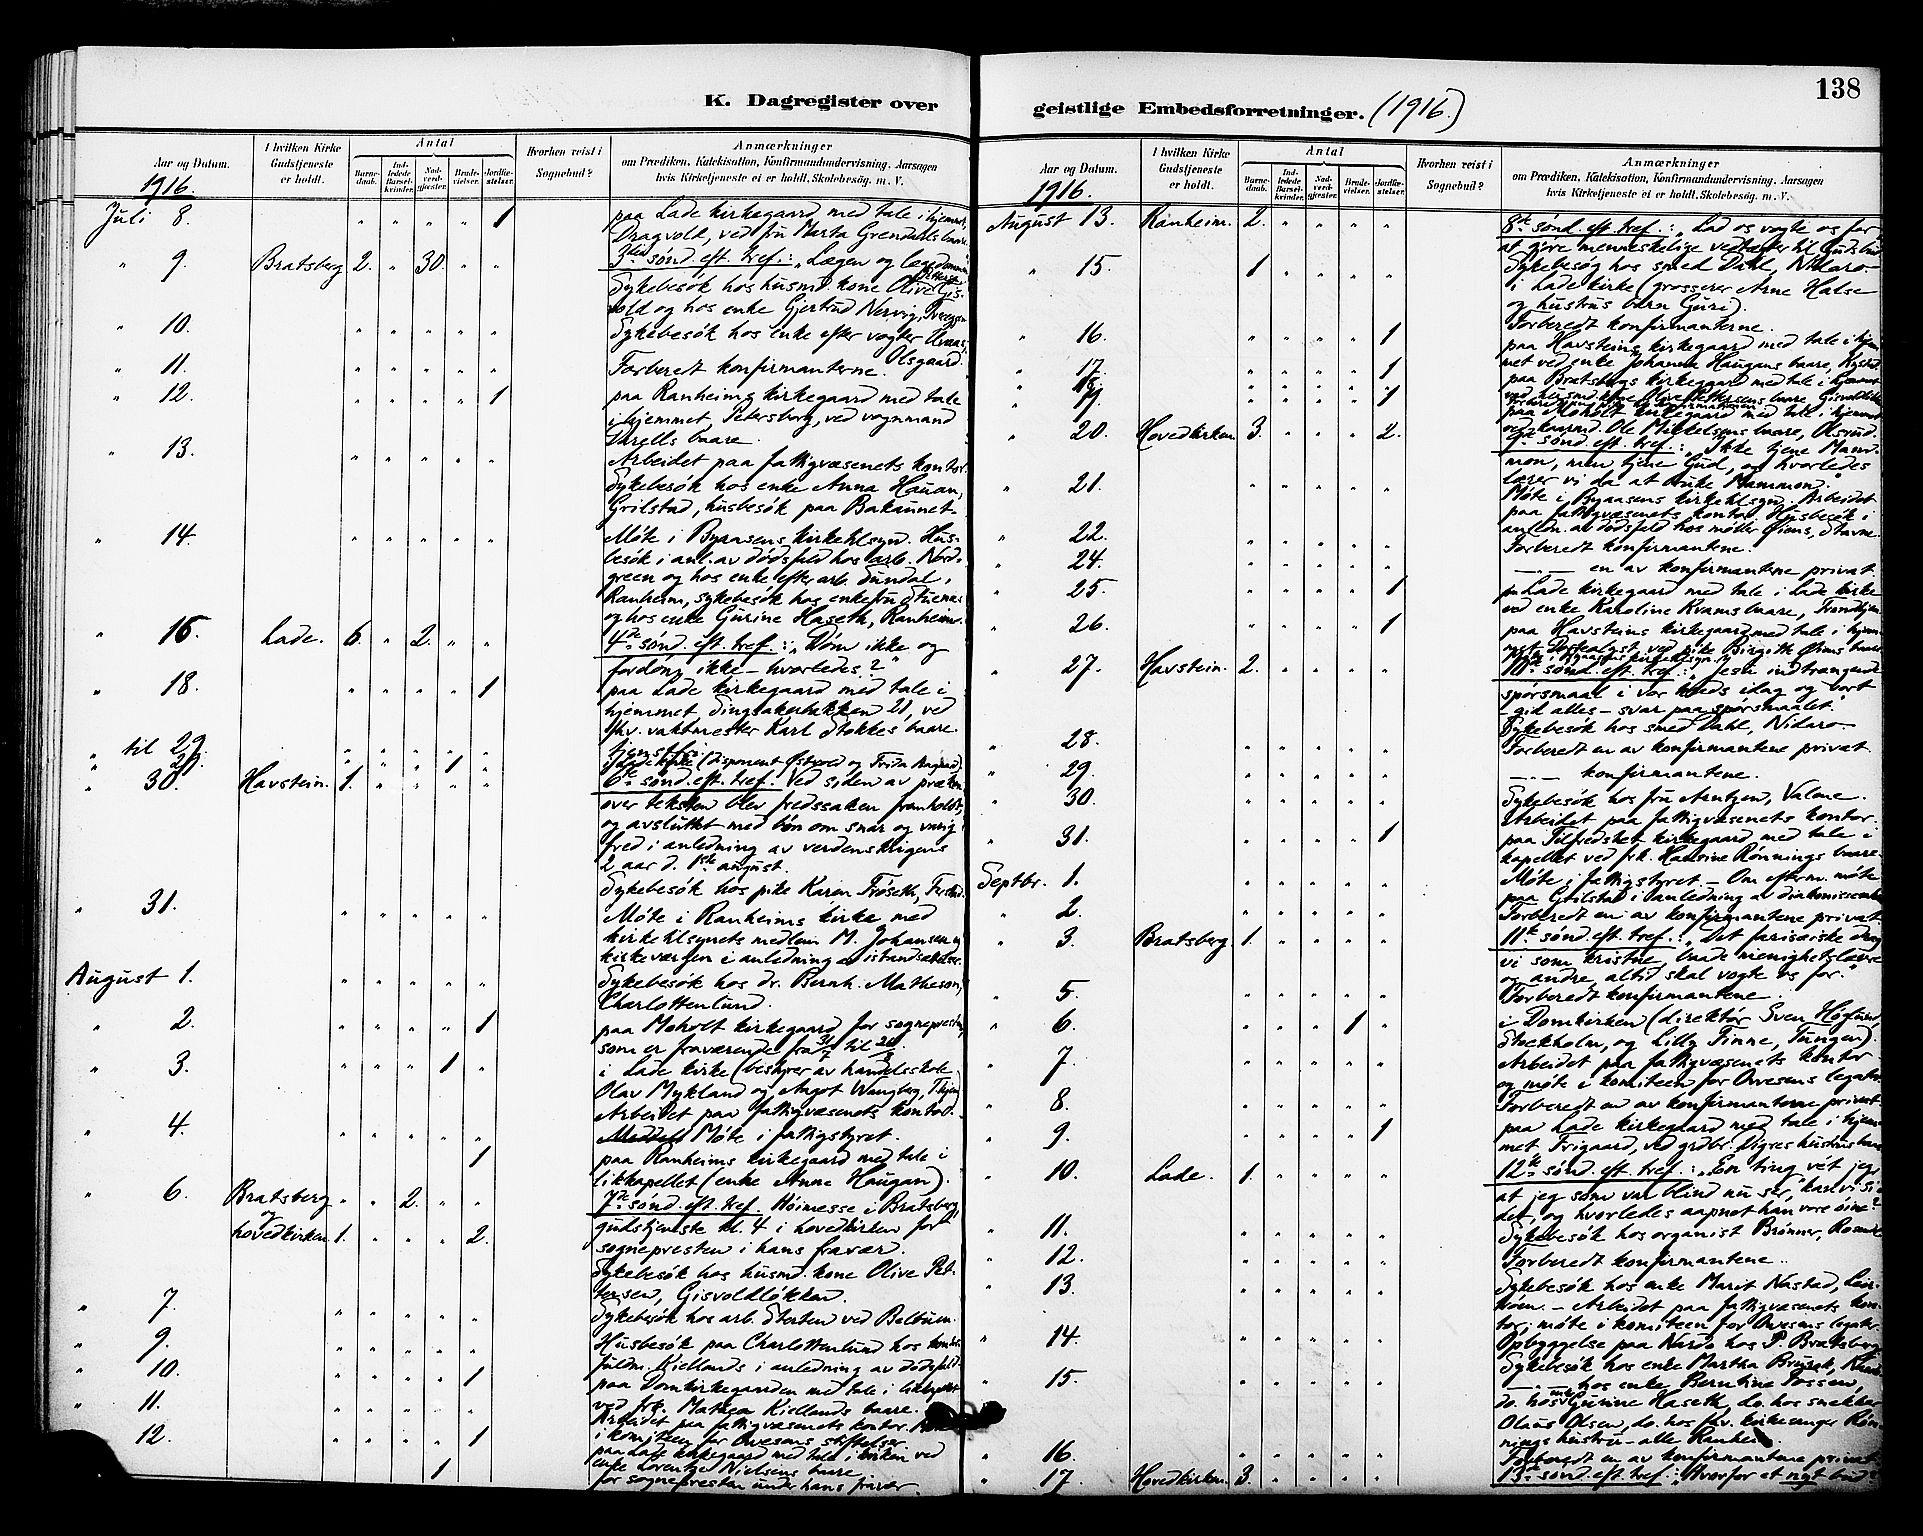 K. Dagregister over
Aar og Datum.
I hvilken Kirke Gudstjeneste er holdt.
Antal
Barnedaab.
Indledede Barselkvinder.
Nadverdgjester.
Brudevielser.
Jordfæstelser.
Hvorhen reist i Sognebud?
Anmærkninger
om Prædiken, Katekisation, Konfirmandundervisning, Aarsagen
hvis Kirketjeneste ei er holdt, Skolebesøg, m. V.
1916.
Juli 8. " " " " 1 paa Lade kirkegaard med tale i hjemmet,
Dragvoll, ved fru Marta Grendahls baare.
" 9. Bratsberg 2. " 30. " " 3die sønd. eft. tref.: „Lægen og lægedommen"
Sykebesøk hos husmd. kone Olive Pettersen, Gis-
vold og hos enke Gjertrud Nervig,
" 10. " " " " " Sykebesøk hos enke efter vogter
Olsgaard.
" 11. " " " " " Forberet konfirmanterne.
" 12. " " " " 1 paa Ranheims kirkegaard med tale
i hjemmet, Petersborg, ved vognmand
baare.
" 13. " " " " " Arbeidet paa fattigvæsenets kontor.
Sykebesøk hos enke Anna Hauan,
Grilstad, husbesøk paa Bakaunet.
" 14. " " " " " Møte i Byaasens kirketilsyn. Hus-
besøk i anl. av dødsfald hos arb. Nord-
green og hos enke efter arb. Sundal,
Ranheim, sykebesøk hos enkefru
og hos enke Gurine Haseth, Ranheim.
" 16. Lade. 6. " 2. " " 4de sønd. eft. tref.: „Døm ikke og
fordøm ikke – hvorledes?"
" 18. " " " " 1 paa Lade kirkegaard med tale i
hjemmet Singsakerbakken 21, ved
fhv. vaktmester Karl Stokkes baare.
" til 29. " " " " " tjenstfri.
" 29. " " " 1 " i Lade kirke (disponent
" 30. Havstein. 1. " " " " 6te sønd. eft. tref. Ved siden av præken
over teksten blev fredssaken framholdt,
og avsluttet med bøn om snar og varig
fred i anledning av verdenskrigens
2 aar d. 1ste august.
Sykebesøk hos pike Karen Frøseth,
" 31. " " " " " Møte i Ranheims kirke med
kirketilsynets medlem M. Johansen og
kirkevergen i anledning av istandsættelse.
August 1. " " " " " Sykebesøk hos dr. Bernh. Matheson,
Charlottenlund.
" 2. " " " " 1 paa Moholt kirkegaard for sognepresten,
som er fraværende fra 31/7 til
" 3. " " " 1 " i Lade kirke (bestyrer av handelsskole
Olav Mykland og Aagot Wangberg,
Arbeidet paa fattigvæsenets kontor.
" 4. " " " " " Møte i fattigstyret.
1 paa Ranheims kirkegaard med tale i
likkapellet (enke Anne Haugan).
" 6. Bratsberg " " 2. " " 7de sønd. eft. tref. Høimesse i Bratsberg,
og
hovedkirken. 1. " " " 2. gudstjeneste kl. 4 i hovedkirken for
sognepresten i hans fravær.
Sykebesøk hos husmd. kone Olive Pet-
tersen, Gisvoldløkken.
" 7. " " " " " Sykebesøk hos arb. Sterten ved Belbuen.
" 9. " " " " " Husbesøk paa Charlottenlund hos
fuldm. Kiellands i anledning av dødsfald.
" 10. " " " " 1 paa Domkirkegaarden med tale i likkapellet
ved frk. Mathea Kiellands baare.
" 11. " " " " " Arbeidet paa fattigvæsenets kontor.
i komiteen for Owesens stiftelser
" 12. " " " " 1 paa Lade kirkegaard med tale i kirken ved
enke Lorentze Nielsens baare.
1 for sognepresten under hans fravær.
geistlige Embedsforretninger. (1916.)
138
Aar og Datum.
I hvilken Kirke Gudstjeneste er holdt.
Antal
Barnedaab.
Indledede Barselkvinder.
Nadverdgjester.
Brudevielser.
Jordfæstelser.
Hvorhen reist i Sognebud?
Anmærkninger
om Prædiken, Katekisation, Konfirmandundervisning, Aarsagen
hvis Kirketjeneste ei er holdt, Skolebesøg, m. V.
1916.
August 13. Ranheim. 2. " " " " 8de sønd. eft. tref.: „Lad os vogte os for
at gjøre menneskelige vedtægter til Guds bud
Sykebesøg hos smed Dahl, Nidarø.
" 15. 1 " " " " i Lade kirke (grosserer Arne Halse
og hustrus barn Guri).
Forberedt konfirmanterne.
" 16. " " " " 1 paa Havsteins kirkegaard med tale i hjem-
met ved enke Johanna Haugans baare,
" 17. " " " " 1 paa Bratsbergs kirkegaard med tale i hjemmet
" 18. " " " " " ved husmd. kone Olive Pettersens baare, Gisvoldløkken
" 19. " " " " 1 paa Moholt kirkegaard med tale i hjemmet
ved skaarmd. Ole Mikkelsens baare, Olsrud.
" 20. Hovedkirken. 3. " " " 2. 9de sønd. eft. tref.: „Ikke tjene Mam-
mon, men tjene Gud, og hvorledes
lærer vi da at bruke Mammon."
" 21. " " " " " Møte i Byaasens kirketilsyn. Arbeidet
paa fattigvæsenets kontor. Husbesøk i
anledn. av dødsfald hos møller Øiens, Stavne.
" 22. " " " " " Forberedt konfirmantene.
" 24. " " " " " —"— en av konfirmantene privat.
" 25. " " " " 1 paa Lade kirkegaard med tale i Lade kirke
ved enke Karoline Kvams baare, Trondhjem.
" 26. " " " " 1 paa Havsteins kirkegaard med tale i hjem-
met ved pike Birgitte Øiens baare
" 27. Havstein. 2. " " " " 10de sønd. eft. tref.: „Jesu indtrængende
spørsmaal i vor kreds idag og vort
– gid alles – svar paa spørsmaalet."
Sykebesøk hos smed Dahl, Nidarø.
" 28. " " " " " Forberedt en av konfirmantene privat.
" 29. " " " " " —"— konfirmantene.
" 30. " " " " " Sykebesøk hos fru Arntzen, Valene.
Arbeidet paa fattigvæsenets kontor.
" 31. " " " " 1 paa Tilfredshet kirkegaard med tale i
kapellet ved frk. Hansine Rønnings baare.
Septbr. 1. " " " " " Møte i fattigstyret. – Om efterm. møte
paa Grilstad i anledning av
" 2. " " " " " Forberedt en av konfirmantene privat.
" 3. Bratsberg. 1. " " " " 11te sønd. eft. tref.: „Det farisæiske drag
vi som kristne, baade menighetslærere
og andre, altid skal vogte os for."
" 5. " " " " " Forberedt konfirmantene.
" 6. " " " 1 " i Domkirken (direktør Sven Høglund,
Stockholm, og Lilly Finne, Tungen).
" 7. " " " " " Arbeidet paa fattigvæsenets kontor
og møte i komiteen for Owesens legater.
" 8. " " " " " Forberedt en av konfirmanterne privat.
" 9. " " " " 1 paa Lade kirkegaard med tale i hjem-
met, Frigaard, ved grdbr. hustrus baare
" 10. Lade. 1. " " " " 12te sønd. eft. tref.: „En ting vét jeg,
at jeg som var blind nu ser," kan vi si
det, og hvorledes aapnet han vore øine?
" 11. " " " " " Sykebesøk hos organist Brønner,
" 12. " " " " " Forberedt konfirmantene.
" 13. " " " " " Sykebesøk hos enke Marit Nastad,
– Arbeidet paa fattigvæsenets kon-
tor, møte i komiteen for Owesens legater.
" 14. " " " " " Opbyggelse paa Nardo hos P. Bratsberg.
Sykebesøk hos enke Martha
" 15. " " " " " —"— hos enke Berntine Fossen,
do. hos enke Gurine Haseth, do. hos snekker
Olaus Olsen, do. hos fhv. kirkesanger Røn-
nings hustru – alle Ranheim.
" 16. " " " " " Forberedt en av konfirmantene privat.
" 17. Hovedkirken. 3. " " " " 13de sønd. eft. tref.: „Hvorfor et nyt bud?